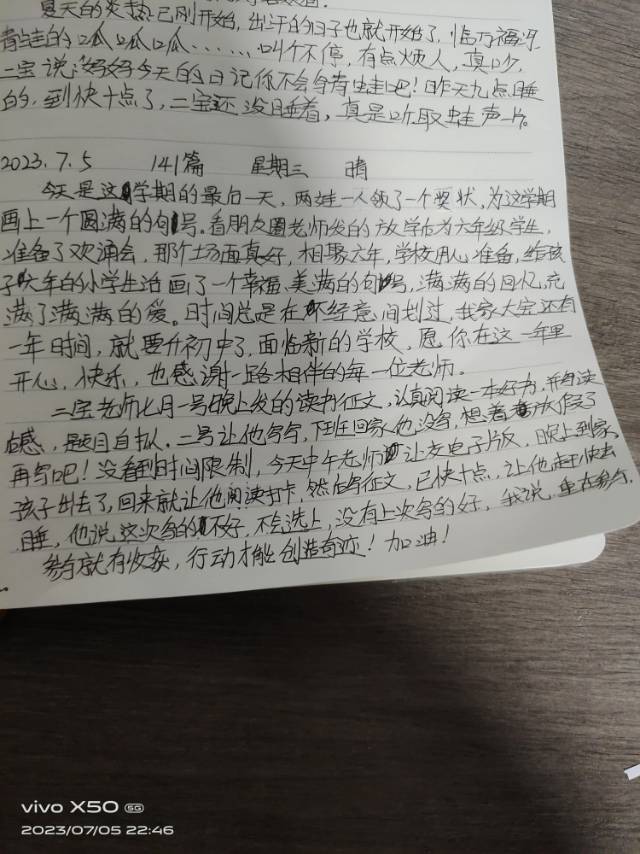 夏天的炎热已刚开始,出汗的日子也就开始了,临万福河
青蛙的呱呱呱……叫个不停,有点烦人,真吵,
二宝说:妈妈今天的日记你不会写青蛙吧!昨天九点睡
的,到快十点了,二宝还没睡着,真是听取蛙声一片。
2023.7.5 141篇 星期三 晴
今天是这学期的最后一天,两娃一人领了一个奖状,为这学期
画上一个圆满的句号。看朋友圈老师发的放学后为六年级学生,
准备了欢诵会,那个场面真好,相聚六年,学校用心准备,给孩
子六年的小学生活画了一个幸福、美满的句号,满满的回忆充
满了满满的爱。时间总是在不经意间划过,我家大宝还有
一年时间,就要升初中了,面临新的学校,愿你在这一年里
开心、快乐,也感谢一路相伴的每一位老师。
二宝老师七月一号晚上发的读书征文,认真阅读一本好书,并写读
后感,题目自拟,二号让他写写,下班回家他没写,想着放假了
再写吧!没看到时间限制,今天中午老师让交电子版,晚上到家
孩子出去了,回来就让他阅读打卡,然后写征文,已快十点,让他赶快去
睡,他说这次写的不好,不会选上,没有上次写的好,我说,重在参与,
参与就有收获,行动才能创造奇迹!加油!
vivo X50 5G
2023/07/05 22:46